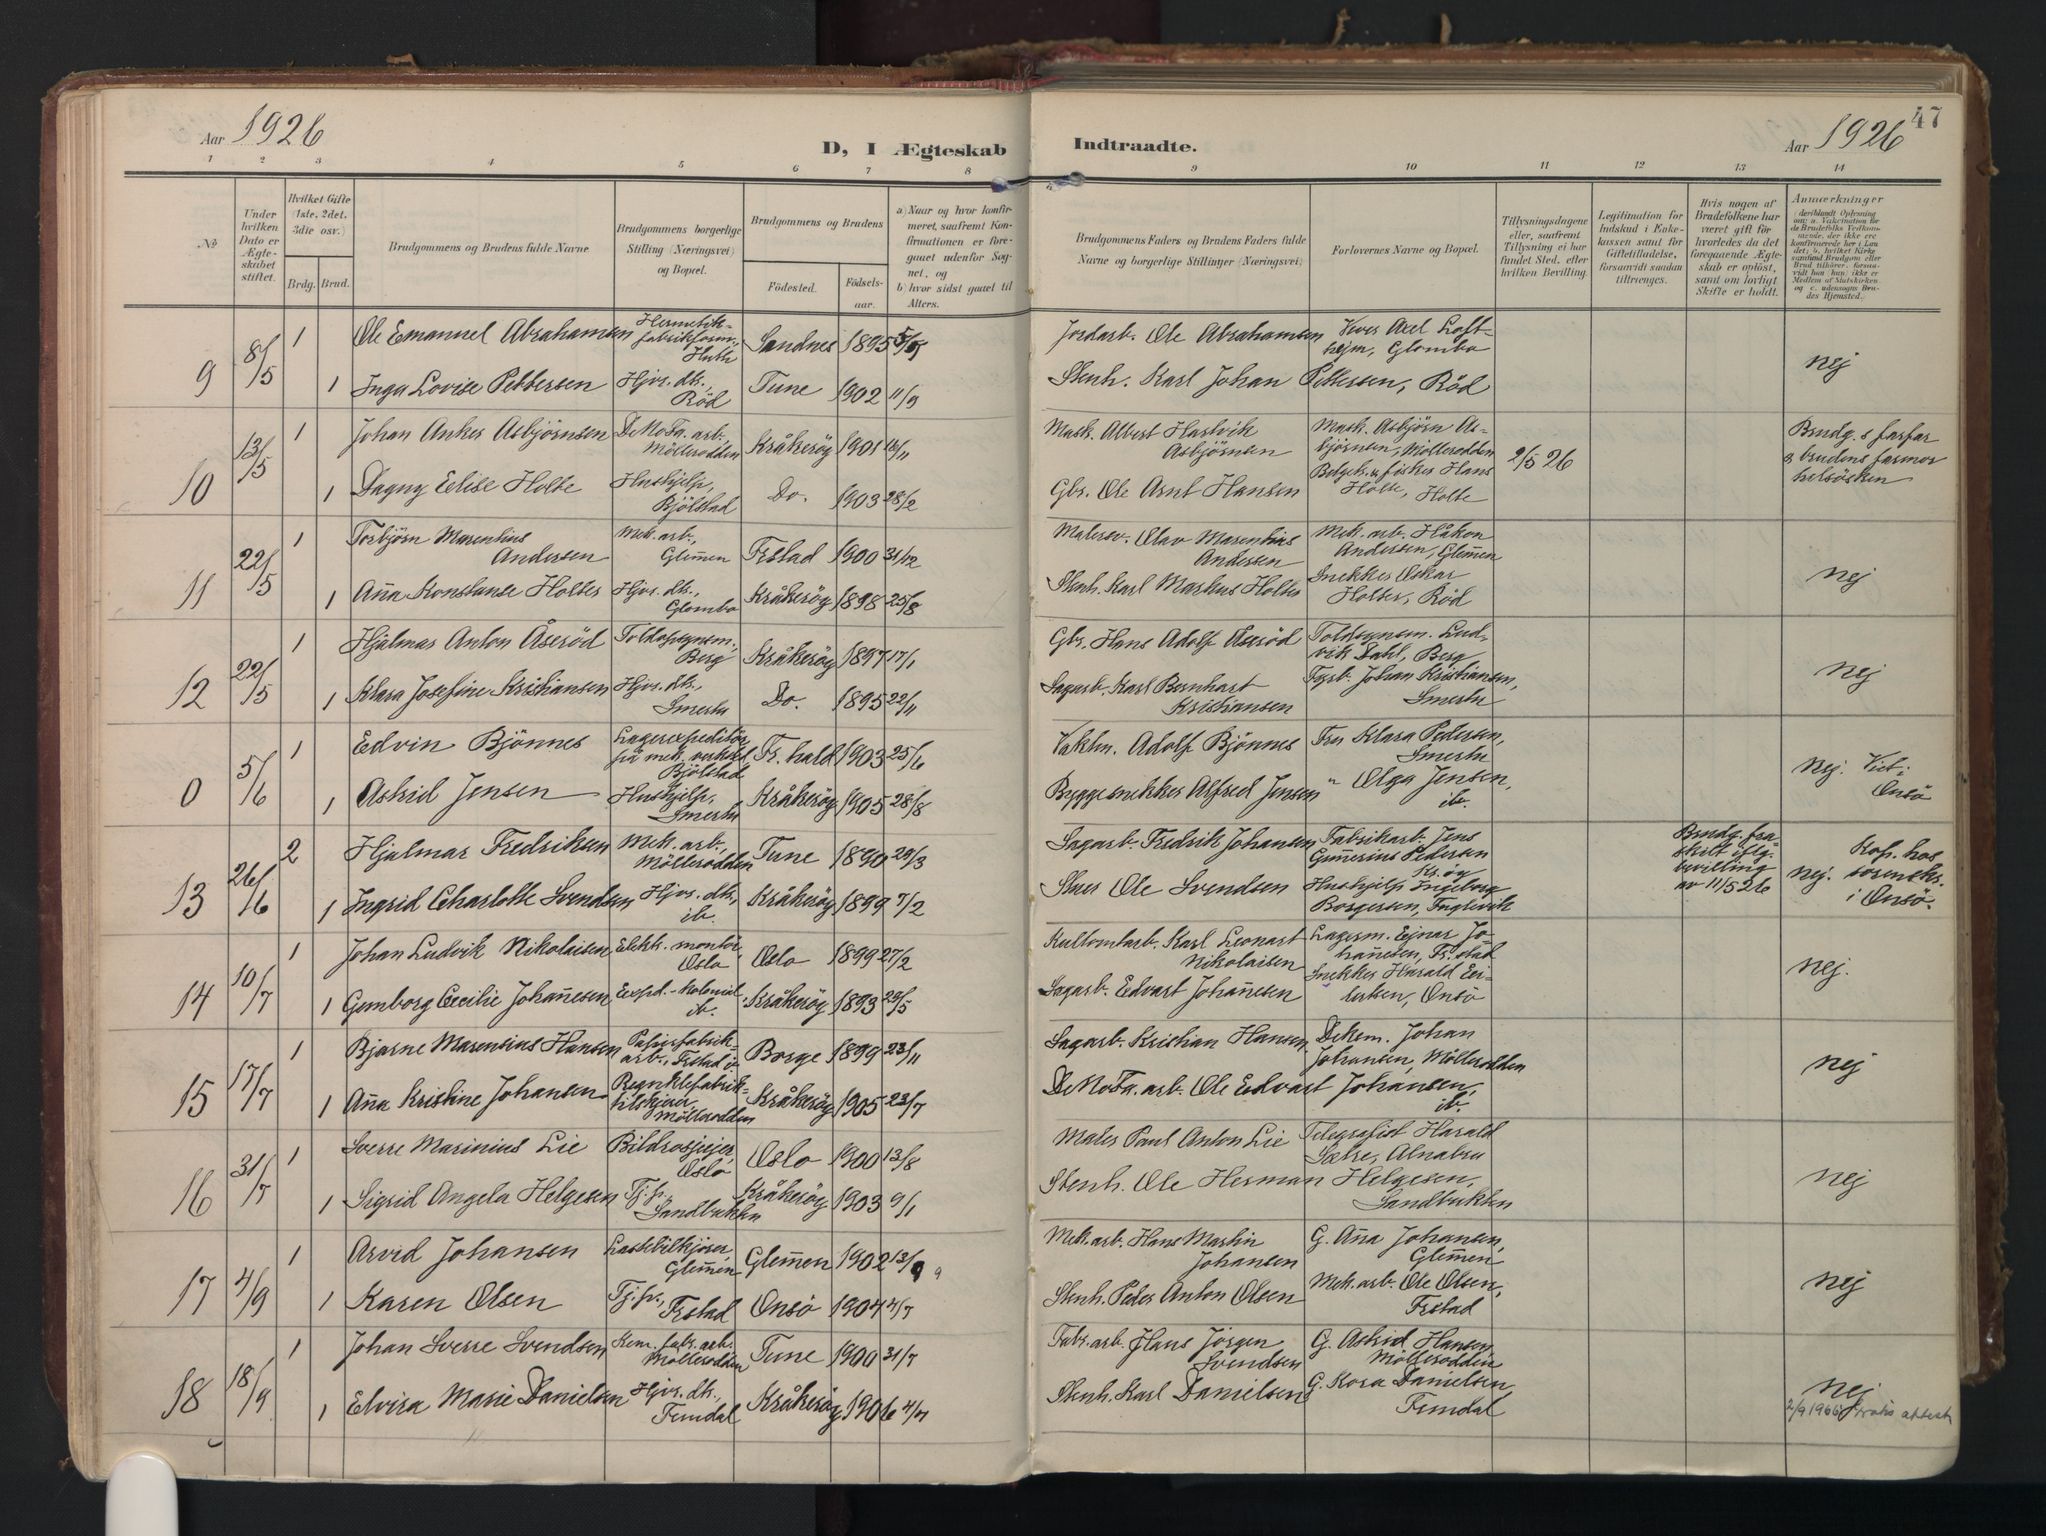 47
Aar 1926
D, I Ægteskab
Indtraadte.
Aar 1926
1 2 3 4 5 6 7 8 9 10 11 12 13 14
No
Under hvilken Dato er Ægteskabet stiftet.
Hvilket Gifte (1ste, 2det, 3die osv.)
Brdg. Brud.
Brudgommens og Brudens fulde Navne
Brudgommens borgerlige Stilling (Næringsvei) og Bopæl.
Brudgommens og Brudens
Fødested. Fødsels-aar.
a) Naar og hvor konfirmeret, saafremt Konfirmationen er foregaaet udenfor Sognet, og
b) hvor sidst gaaet til Alters.
Brudgommens Faders og Brudens Faders fulde
Navne og borgerlige Stillinger (Næringsvei)
Forlovernes Navne og Bopæl.
Tillysningsdagene eller, saafremt Tillysning ei har fundet Sted, efter hvilken Bevilling.
Legitimation for Indskud i Enkekassen samt for Giftetilladelse, forsaavidt saadan tiltrænges.
Hvis nogen af Brudefolkene har været gift før hvorledes da det foregaaende Ægteskab er opløst, samt om lovligt Skifte er holdt.
Anmærkninger
9 8/5 1 Ole Emanuel Abrahamsen Hermetik-fabrikform., Sandnes 1895 Jordarb. Ole Abrahamsen Axel Loft-hejm, Glombo
1 Inga Lovise Pettersen Hjvs. dt., Röd Tune 1902 11/9 Stenh. Karl Johan Pettersen, Röd nej
10 13/5 1 Johan Anker Asbjørnsen DeNoFa. arb. Møllerodden Kråkerøy 1901 Mask. Albert Hartvik Asbjörnsen Mask. Asbjörn As-björnsen, Möllerodden 2/5 26
1 Dagny Elise Holte Hushjelp, Bjölstad Do. 1903 28/2 Gbr. Ole Arnt Hansen fisker Hans Holte, Holte Brudg.s farfar & brudens farmor helsösken
11 22/5 1 Torbjörn Marentius Andersen Mek. arb., Glem̄en Frstad 1900 31/12 Malersv. Olav Marentius Andersen Mek. arb. Håkon Andersen, Glem̄en
1 An̄a Konstanse Holter Hjvs. dt., Glombo Kråkerøy 1898 25/8 Stenh. Karl Markus Holter Snekker Oskar Holter, Röd nej
12 22/5 1 Hjalmar Anton Åseröd Toldopsynsm., Berg Kråkerøy 1897 17/1 Gbr. Hans Adolf Åseröd Toldopsynsm. Lud-vik Dahl, Berg
1 Klara Josefine Kristiansen Hjvs. dt., Smertu Do. 1895 22/11 Sagarb. Karl Bernhart Kristiansen Johan Kristiansen, Smertu nej
0 5/6 1 Edvin Bjönnes Lagerexpeditör på mek. verksted Bjölstad Fr. hald 1903 25/6 Vaktm. Adolf Bjönnes Fru Klara Pedersen, Smertu
1 Astrid Jensen Hushjelp, Smertu Kråkerøy 1905 28/8 Byggesnekker Alfred Jensen " Olga Jensen, ib. nej. Viet i Onsö
13 26/6 2 Hjalmar Fredriksen Mek. arb., Möllerodden Tune 1890 29/3 Sagarb. Fredrik Johansen Fabrikarb. Jens Gunerius Pedersen Kr.øy Brudg. fra-skilt iflg. bevilling av 11/5 26
1 Ingrid Charlotte Svendsen Hjvs. dt., ib. Kråkerøy 1899 7/2 Ole Svendsen Hushjelp Ingeborg Borgersen, Englevik nej. Kop. hos sorenskr. i Onsö.
14 10/7 1 Johan Ludvik Nikolaisen Elektr. montör, Oslo Oslo 1899 27/2 Karl Leonart Nikolaisen Lagerm. Ejnar Jo-han̄esen, Fr.stad
1 Gunborg Cecilie Johan̄esen Exped. - kolonial, ib. Kråkerøy 1893 29/5 Sagarb. Edvart Johan̄esen Snekker Harald Ei-lertsen, Onsö nej.
15 17/7 1 Bjarne Marensius Hansen Papirfabrik-arb., Frstad Borge 1899 23/11 Sagarb. Kristian Hansen Johan Johansen, Möllerodden
1 An̄a Kristine Johansen Möllerodden Kråkerøy 1905 23/7 DeNoFa. arb. Ole Edvart Johansen, ib. nej
16 31/7 1 Sverre Marinius Lie Bildrosjeejer, Oslo Oslo 1900 13/8 Maler Paul Anton Lie Telegrafist Harald Sætre, Alnabru
1 Sigrid Angela Helgesen Tj.p., Sandbukten Kråkerøy 1903 9/1 Stenh. Ole Herman Helgesen, Sandbukten nej
17 4/9 1 Arvid Johansen Lastebilkjører, Glem̄en Glem̄en 1902 13/9 9 Mek. arb. Hans Martin Johansen G. An̄a Johansen, Glem̄en
1 Karen Olsen Tj.p., Frstad Onsö 1904 4/7 Stenh. Peder Anton Olsen Mek. arb. Ole Olsen, Frstad nej
18 18/9 1 Johan Sverre Svendsen Kem. fabr. arb. Möllerodden Tune 1900 31/7 Fabr. arb. Hans Jörgen Svendsen G. Astrid Hansen Möllerodden
1 Elvira Marie Danielsen Hjvs. dt., Femdal Kråkerøy 1906 Stenh. Karl Danielsen G. Kora Danielsen, Femdal nej
2/9 1966 attest